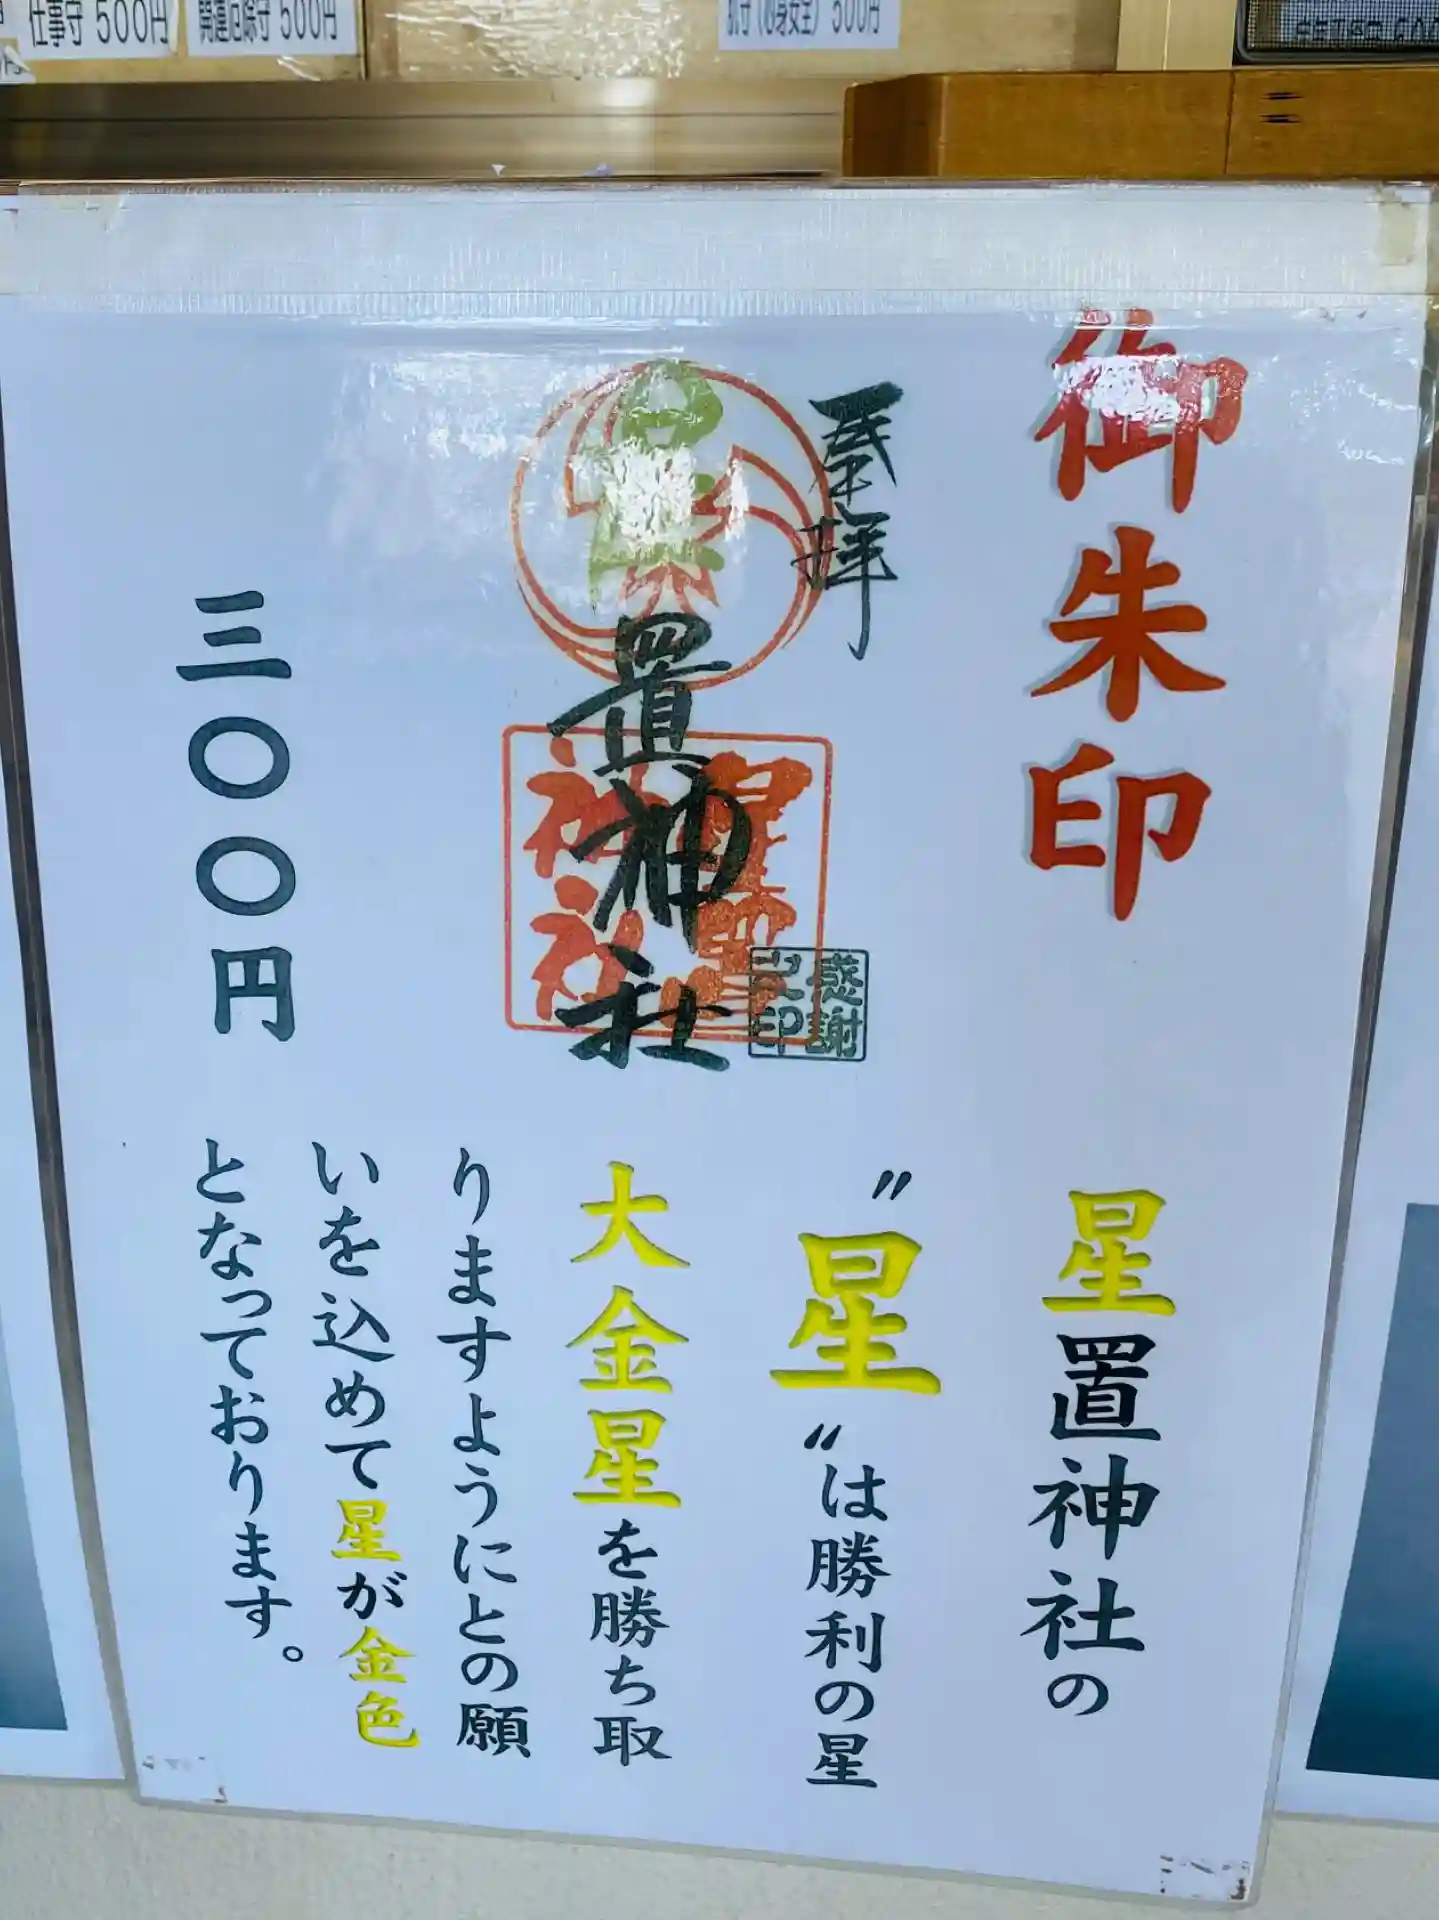 仕事守 500円
開運厄除守 500円
肌守(心身安全) 500円
御朱印
奉拝
星置神社
感謝之印
三〇〇円
星置神社の
〃星〃は勝利の星
大金星を勝ち取
りますようにとの願
いを込めて星が金色
となっております。